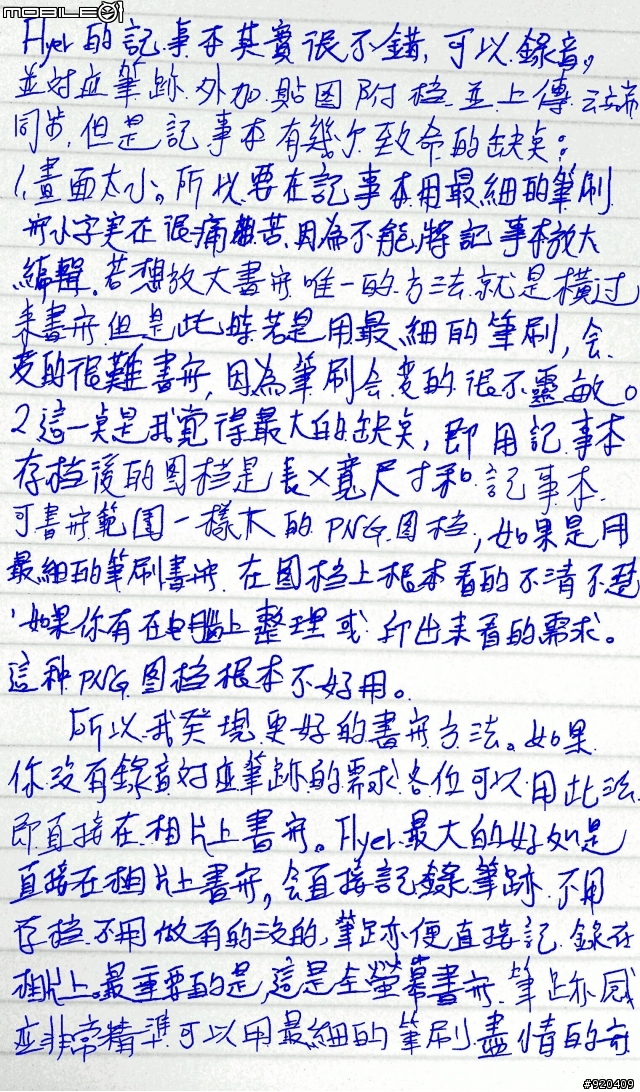 MOBILE01
Flyer的記事本其實很不錯,可以錄音,
並对应筆跡外加貼图附档並上傳云端
同步,但是記事本有幾个致命的缺点:
1.畫面太小。所以要在記事本用最細的筆刷
寫小字实在很痛苦,因為不能將記事本放大
編輯。若想放大書寫唯一的方法就是横过
来書寫但是此時若是用最細的筆刷,会
变的很難書寫,因為筆刷会变的很不靈敏。
2這一点是我覚得最大的缺点,即用記事本
存档後的图档是長x寬尺寸和記事本
可書寫範围一樣大的PNG图档,如果是用
最細的筆刷書寫,在图档上根本看的不清不楚
,如果你有在电腦上整理或印出来看的需求。
這种PNG图档根本不好用。
所以我発現更好的書寫方法。如果
你沒有錄音对应筆跡的需求各位可以用此法
即直接在相片上書寫。Flyer最大的好処是
直接在相片上書寫,会直接記錄筆跡不用
存档不用做有的沒的,筆跡便直接記錄在
相片上。最重要的是,這是全螢幕書寫筆跡感
应非常精準可以用最細的筆刷盡情的寫
#920409